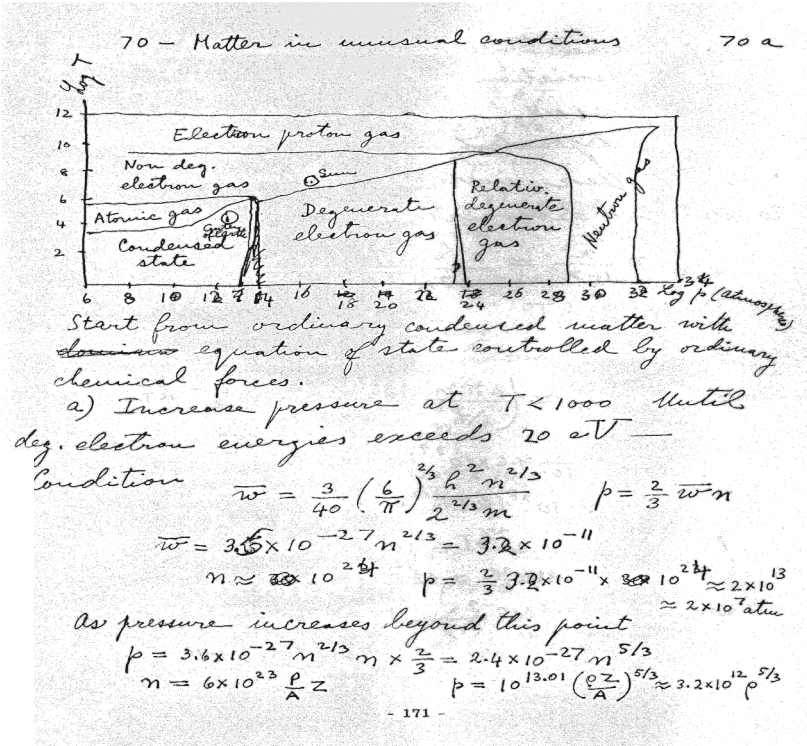 70 – Matter in unusual conditions 70 a
Log T
12
10
8
6
4
2
Electron proton gas
Non deg.
electron gas
Sun
Atomic gas
Center of earth
Condensed
state
Degenerate
electron gas
Relativ.
degenerate
electron
gas
Neutron gas
6 8 10 12 14 16 18 20 22 24 26 28 30 32 34 Log p (atmospheres)
Start from ordinary condensed matter with
equation of state controlled by ordinary
chemical forces.
a) Increase pressure at T < 1000 Until
deg. electron energies exceeds 20 eV —
Condition w̄ = 3/40 (6/π)^2/3 h² n^2/3 / 2^2/3 m p = 2/3 w̄ n
w̄ = 3.5 × 10^-27 n^2/3 = 3.2 × 10^-11
n ≈ 10^24 p = 2/3 3.2 × 10^-11 × 10^24 ≈ 2 × 10^13
≈ 2 × 10^7 atm
As pressure increases beyond this point
p = 3.6 × 10^-27 n^2/3 n × 2/3 = 2.4 × 10^-27 n^5/3
n = 6 × 10^23 ρ/A Z p = 10^13.01 (ρZ/A)^5/3 ≈ 3.2 × 10^12 ρ^5/3
- 171 -